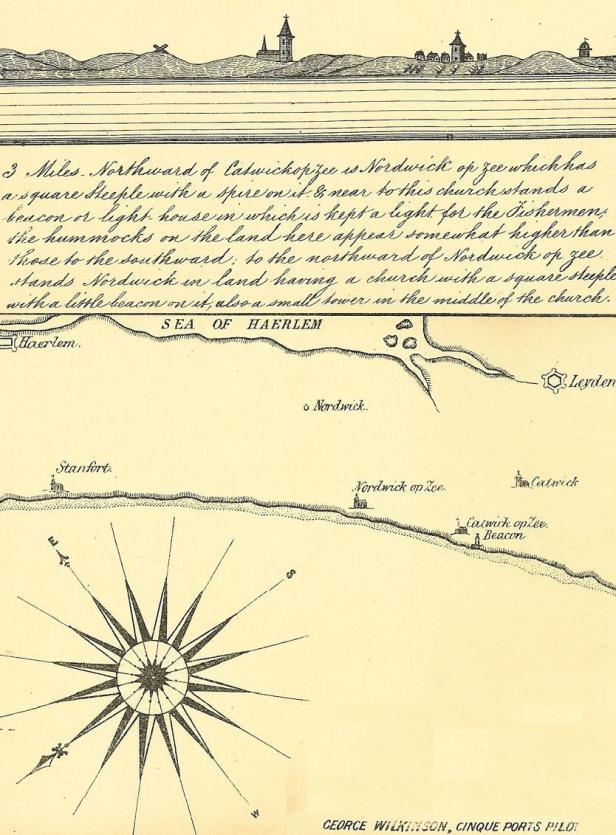 3 Miles. Northward of Catwickopzee is Nordwick op zee which has
a square Steeple with a spire on it & near to this church stands a
beacon or light-house in which is kept a light for the Fishermen;
the hummocks on the land here appear somewhat higher than
those to the southward; to the northward of Nordwick op zee
stands Nordwick in land having a church with a square steeple
with a little beacon on it, also a small tower in the middle of the church.
SEA OF HAERLEM
Haerlem.
Leyden
Nordwick.
Stanfort.
Nordwick op Zee.
Catwick
Catwick op Zee.
Beacon
E
S
W
GEORGE WILKINSON, CINQUE PORTS PILOT